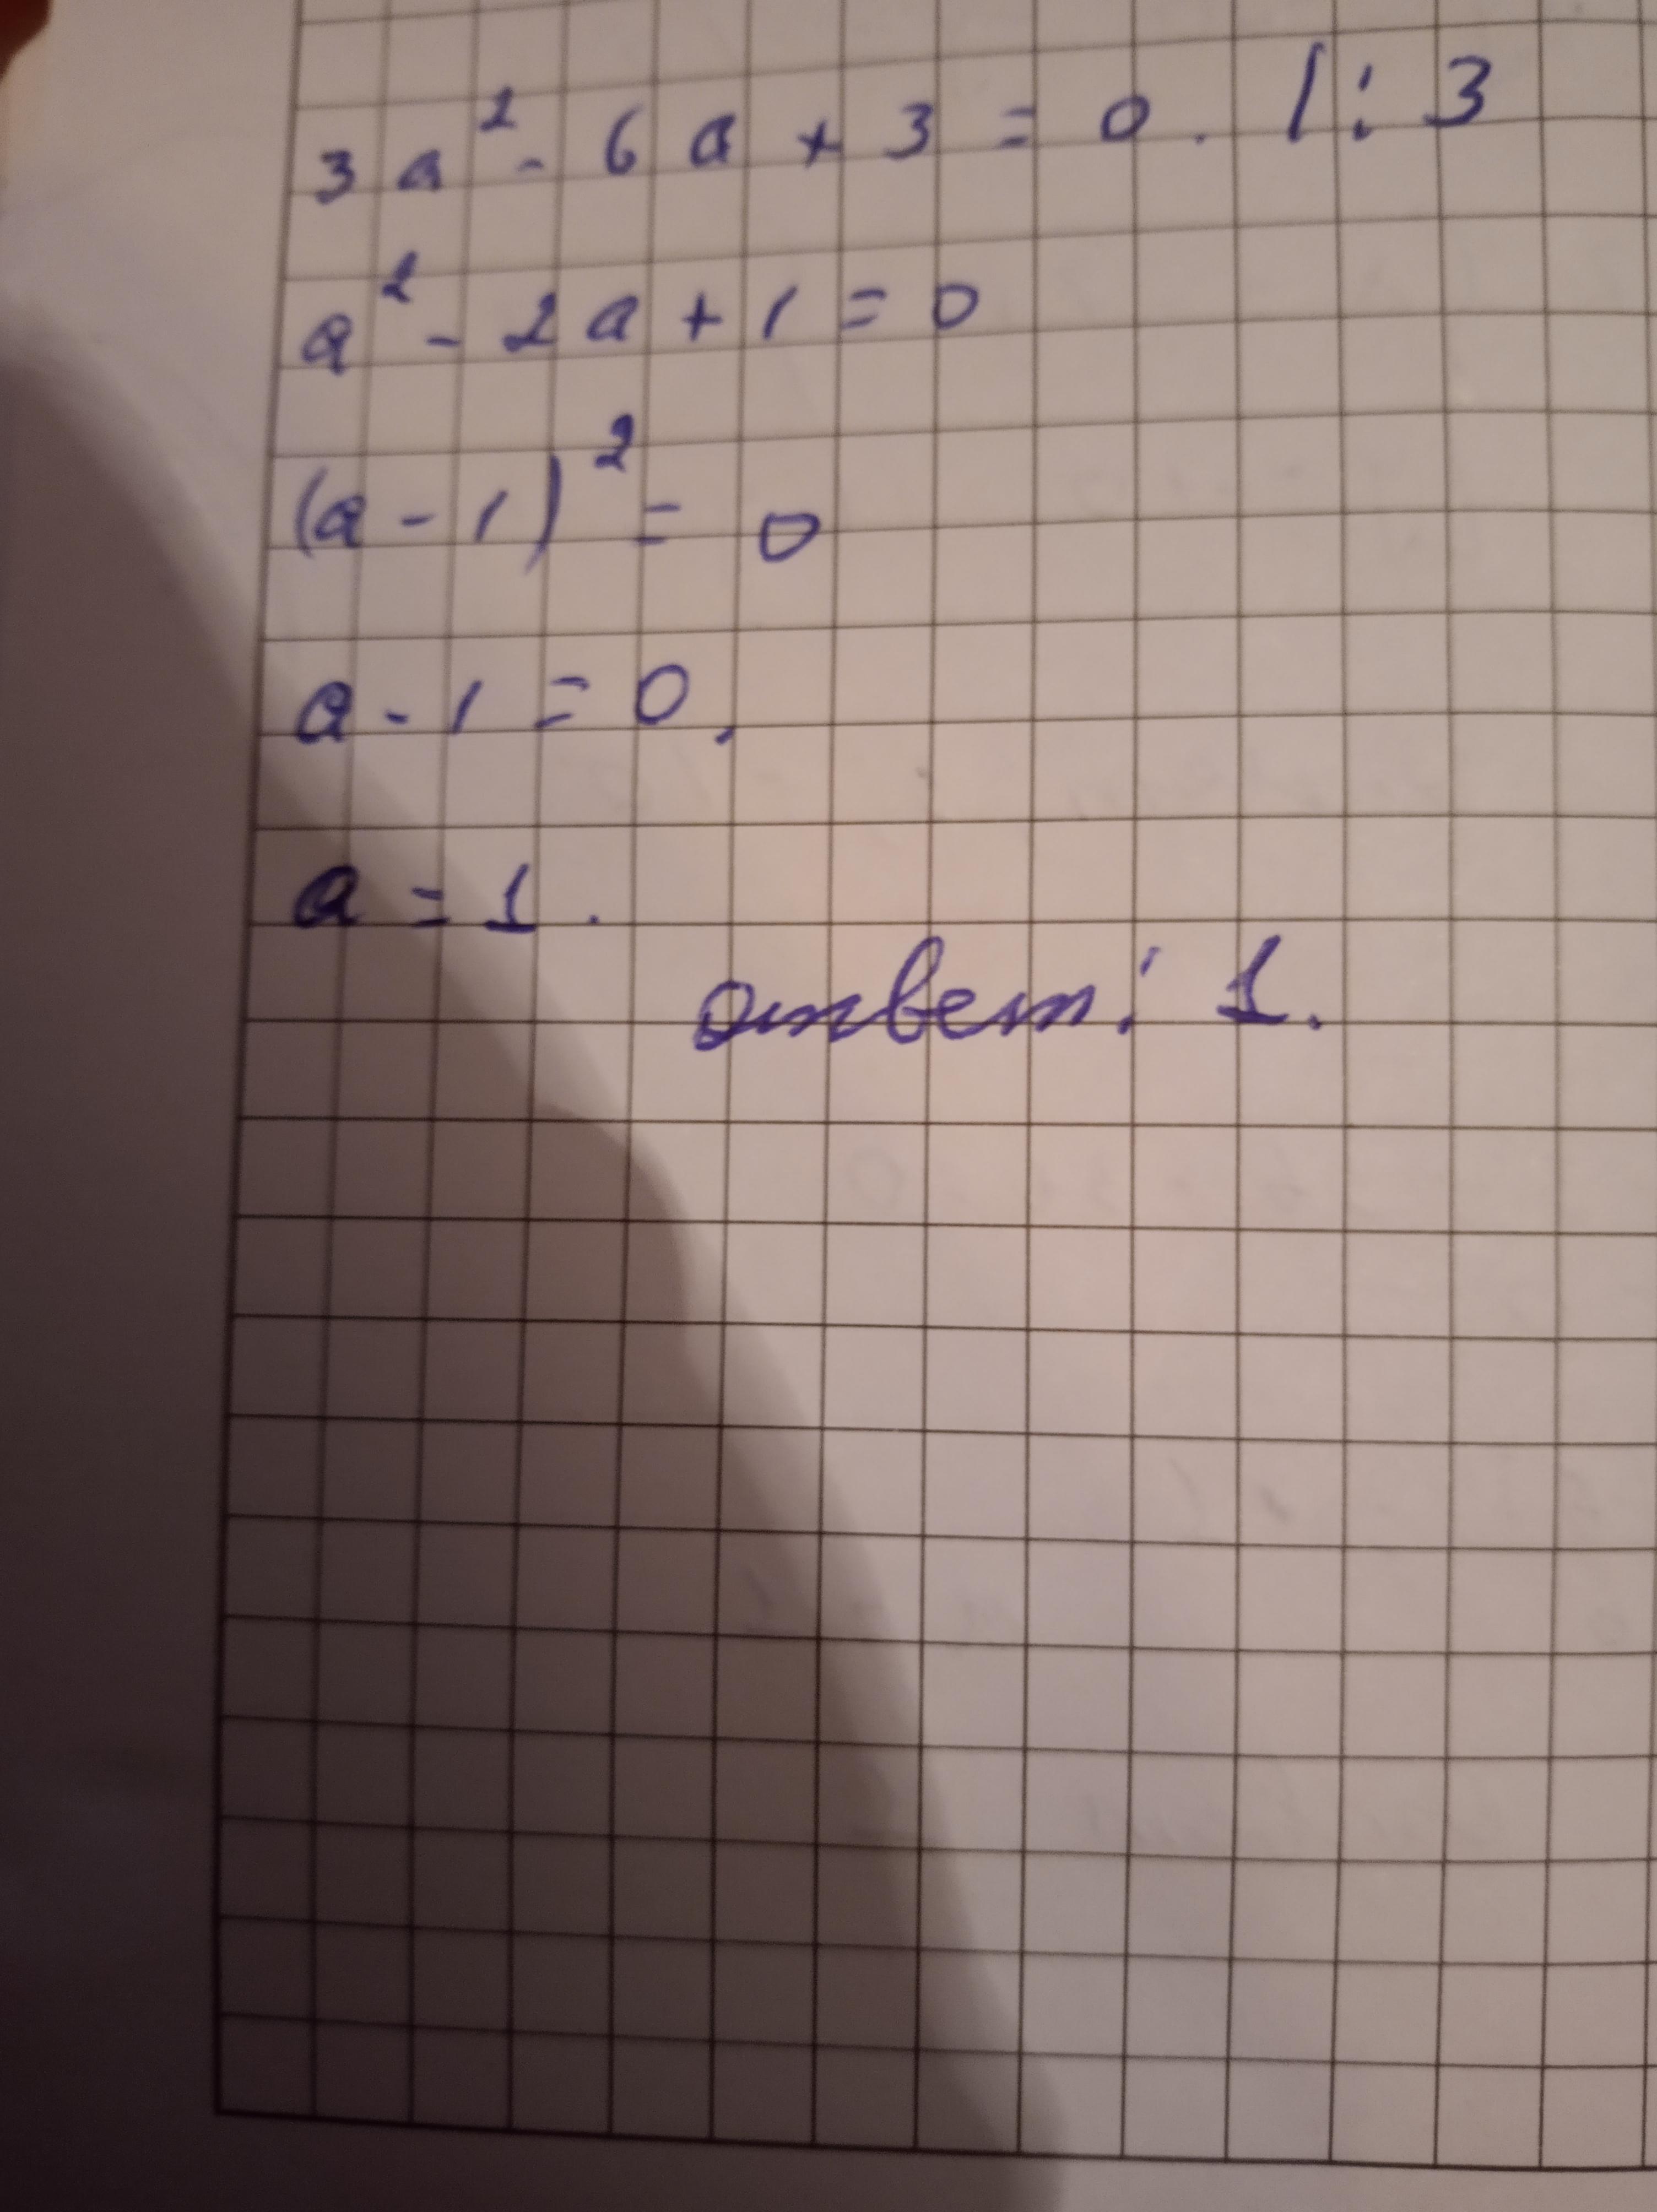 3a² - 6a + 3 = 0. |: 3
a² - 2a + 1 = 0
(a - 1)² = 0
a - 1 = 0.
a = 1.
ответ: 1.